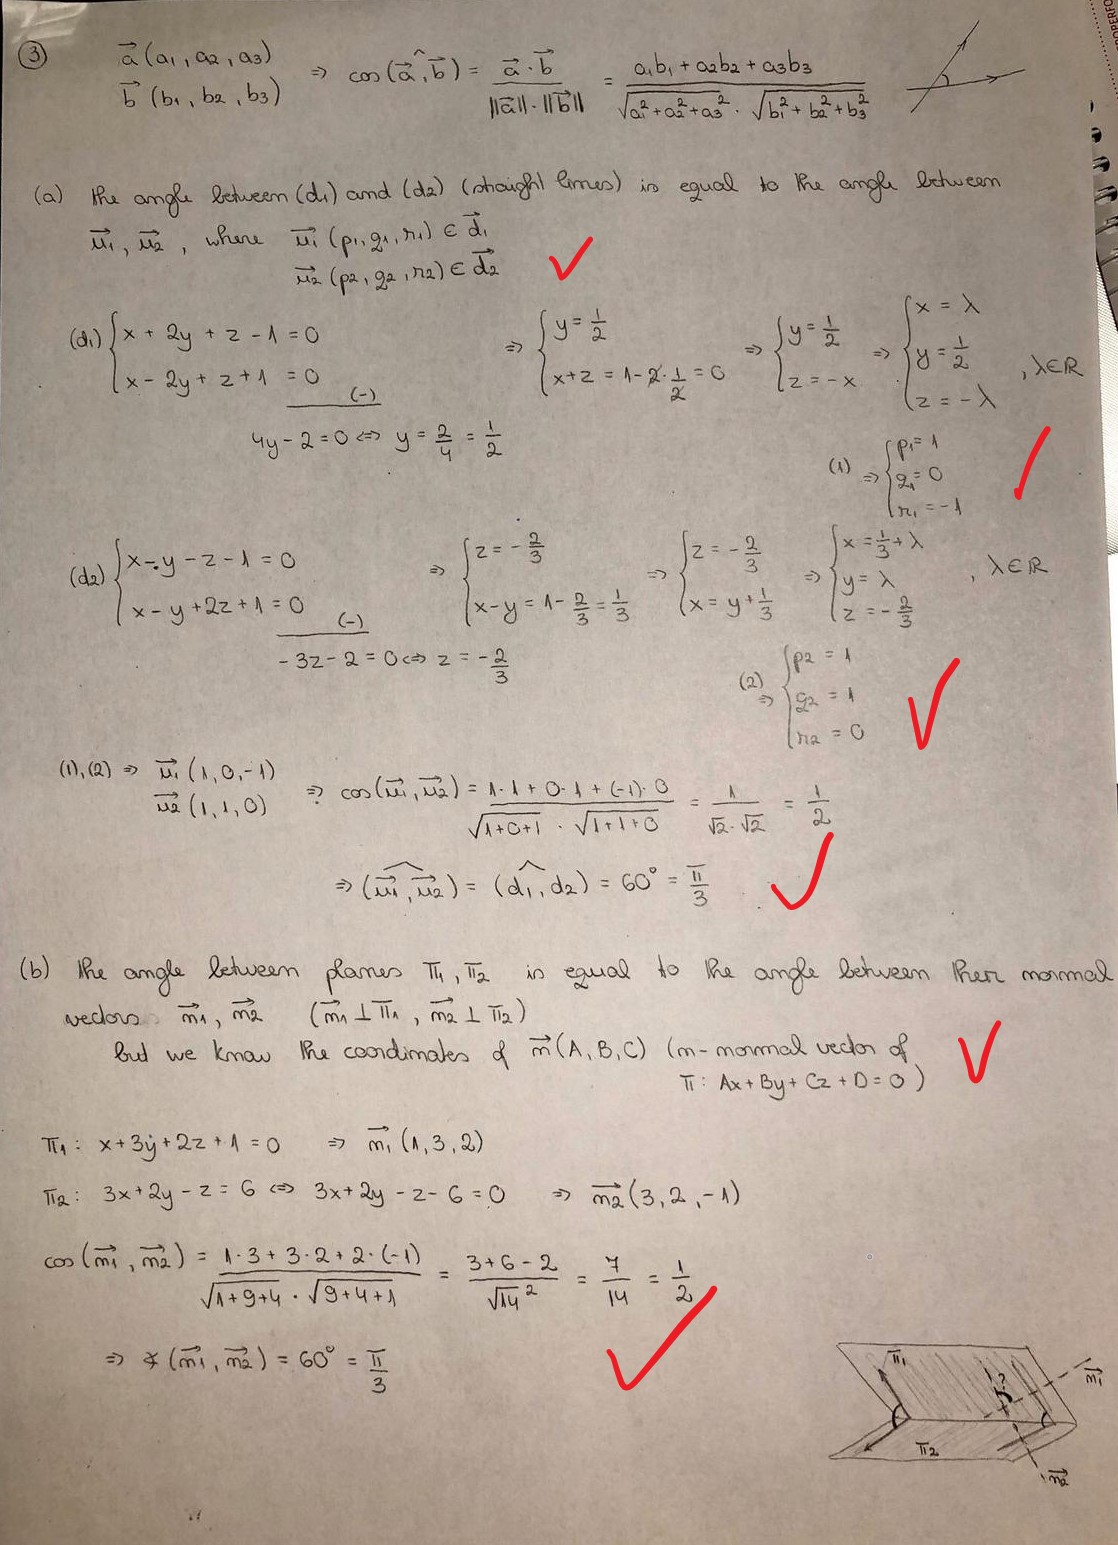 ③ a⃗ (a₁, a₂, a₃)
b⃗ (b₁, b₂, b₃) ⇒ cos(a⃗,^b⃗) = a⃗ · b⃗ / ||a⃗|| · ||b⃗|| = a₁b₁ + a₂b₂ + a₃b₃ / √a₁² + a₂² + a₃² · √b₁² + b₂² + b₃²
(a) the angle between (d₁) and (d₂) (straight lines) is equal to the angle between
u⃗₁, u⃗₂, where u⃗₁ (p₁, q₁, r₁) ∈ d⃗₁
u⃗₂ (p₂, q₂, r₂) ∈ d⃗₂
(d₁) { x + 2y + z - 1 = 0 ⇒ { y = 1/2 ⇒ { y = 1/2 ⇒ { x = λ
x - 2y + z + 1 = 0 x + z = 1 - 2 · 1/2 = 0 z = -x y = 1/2 , λ∈ℝ
(-) z = -λ
4y - 2 = 0 ⇔ y = 2/4 = 1/2
(1) ⇒ { p₁ = 1
q₁ = 0
r₁ = -1
(d₂) { x - y - z - 1 = 0 ⇒ { z = -2/3 ⇒ { z = -2/3 ⇒ { x = 1/3 + λ , λ∈ℝ
x - y + 2z + 1 = 0 x - y = 1 - 2/3 = 1/3 x = y + 1/3 y = λ
(-) z = -2/3
-3z - 2 = 0 ⇔ z = -2/3
(2) ⇒ { p₂ = 1
q₂ = 1
r₂ = 0
(1), (2) ⇒ u⃗₁ (1, 0, -1)
u⃗₂ (1, 1, 0) ⇒ cos(u⃗₁, u⃗₂) = 1·1 + 0·1 + (-1)·0 / √1+0+1 · √1+1+0 = 1 / √2·√2 = 1/2
⇒ (u⃗₁,^u⃗₂) = (d₁,^d₂) = 60° = π/3
(b) the angle between planes π₁, π₂ is equal to the angle between their normal
vectors n⃗₁, n⃗₂ (n⃗₁ ⊥ π₁, n⃗₂ ⊥ π₂)
but we know the coordinates of n⃗(A, B, C) (n - normal vector of
π: Ax + By + Cz + D = 0)
π₁: x + 3y + 2z + 1 = 0 ⇒ n⃗₁ (1, 3, 2)
π₂: 3x + 2y - z = 6 ⇔ 3x + 2y - z - 6 = 0 ⇒ n⃗₂ (3, 2, -1)
cos(n⃗₁, n⃗₂) = 1·3 + 3·2 + 2·(-1) / √1+9+4 · √9+4+1 = 3+6-2 / √14² = 7/14 = 1/2
⇒ ∢ (n⃗₁, n⃗₂) = 60° = π/3
π₁
n⃗₁
π₂
n⃗₂